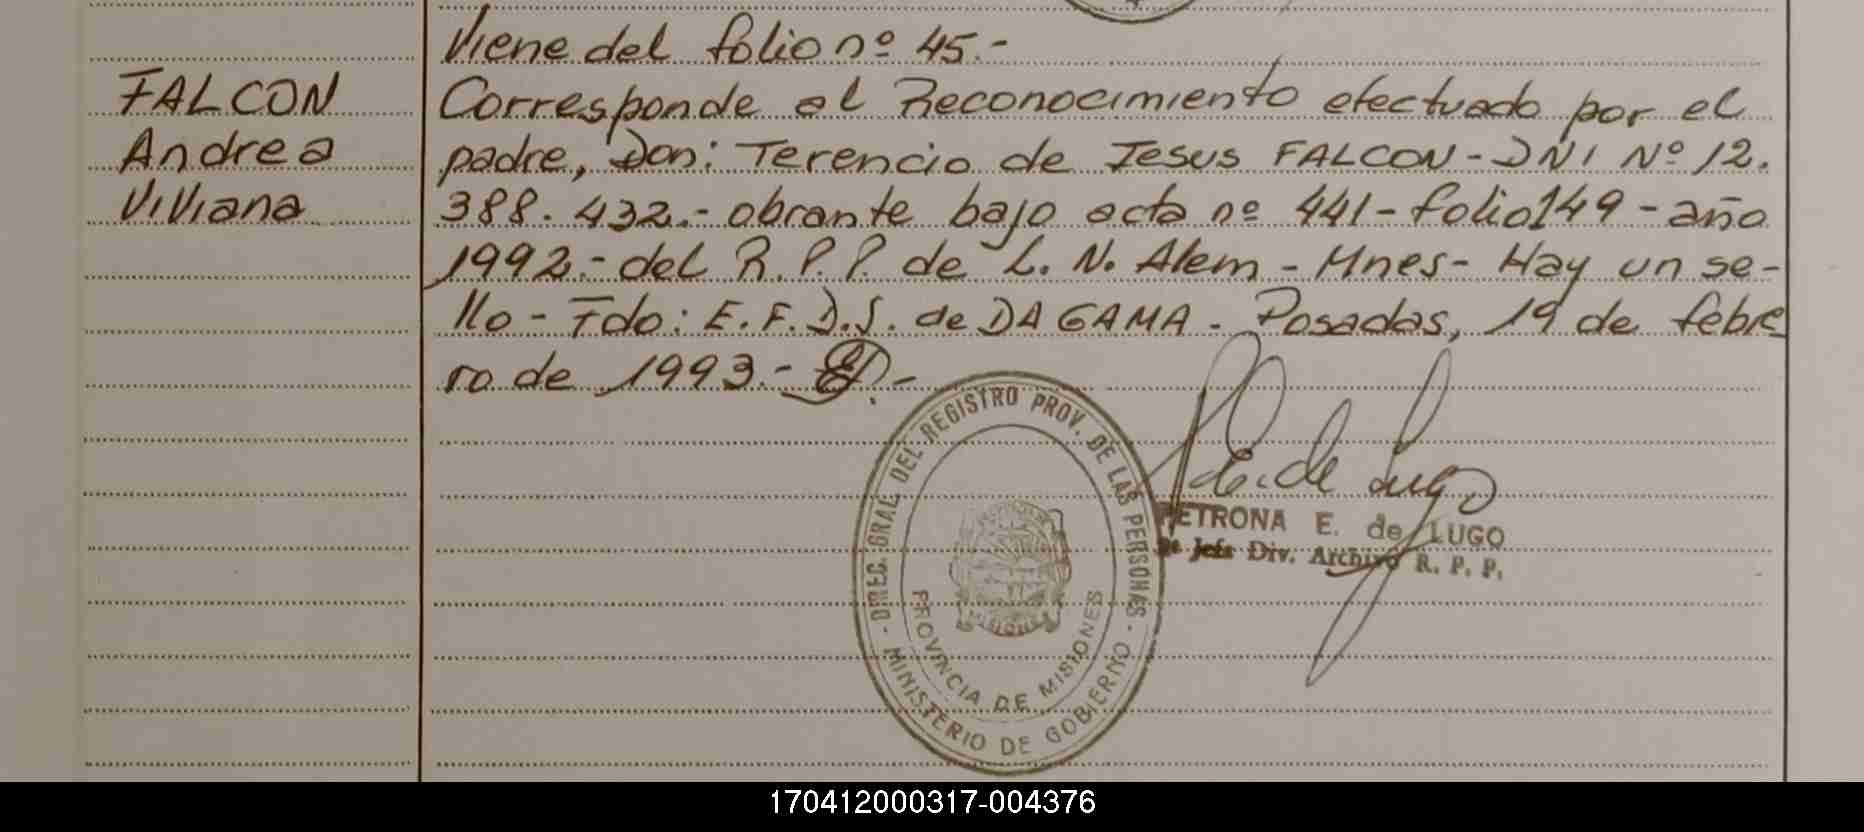 Viene del folio nº 45.-
FALCON
Andrea
Viviana
Corresponde al Reconocimiento efectuado por el
padre, Don: Terencio de Jesus FALCON - DNI Nº 12.
388.432.- obrante bajo acta nº 441 - folio 149 - año
1992.- del R.P.P. de L. N. Alem - Mnes - Hay un se-
llo - Fdo: E.F.D.S. de DA GAMA - Posadas, 19 de febre
ro de 1993.-
DIREC. GRAL. DEL REGISTRO PROV. DE LAS PERSONAS
- MINISTERIO DE GOBIERNO -
PROVINCIA DE MISIONES
MISIONES
P. E. de Lugo
PETRONA E. de LUGO
Jefa Div. Archivo R. P. P.
170412000317-004376